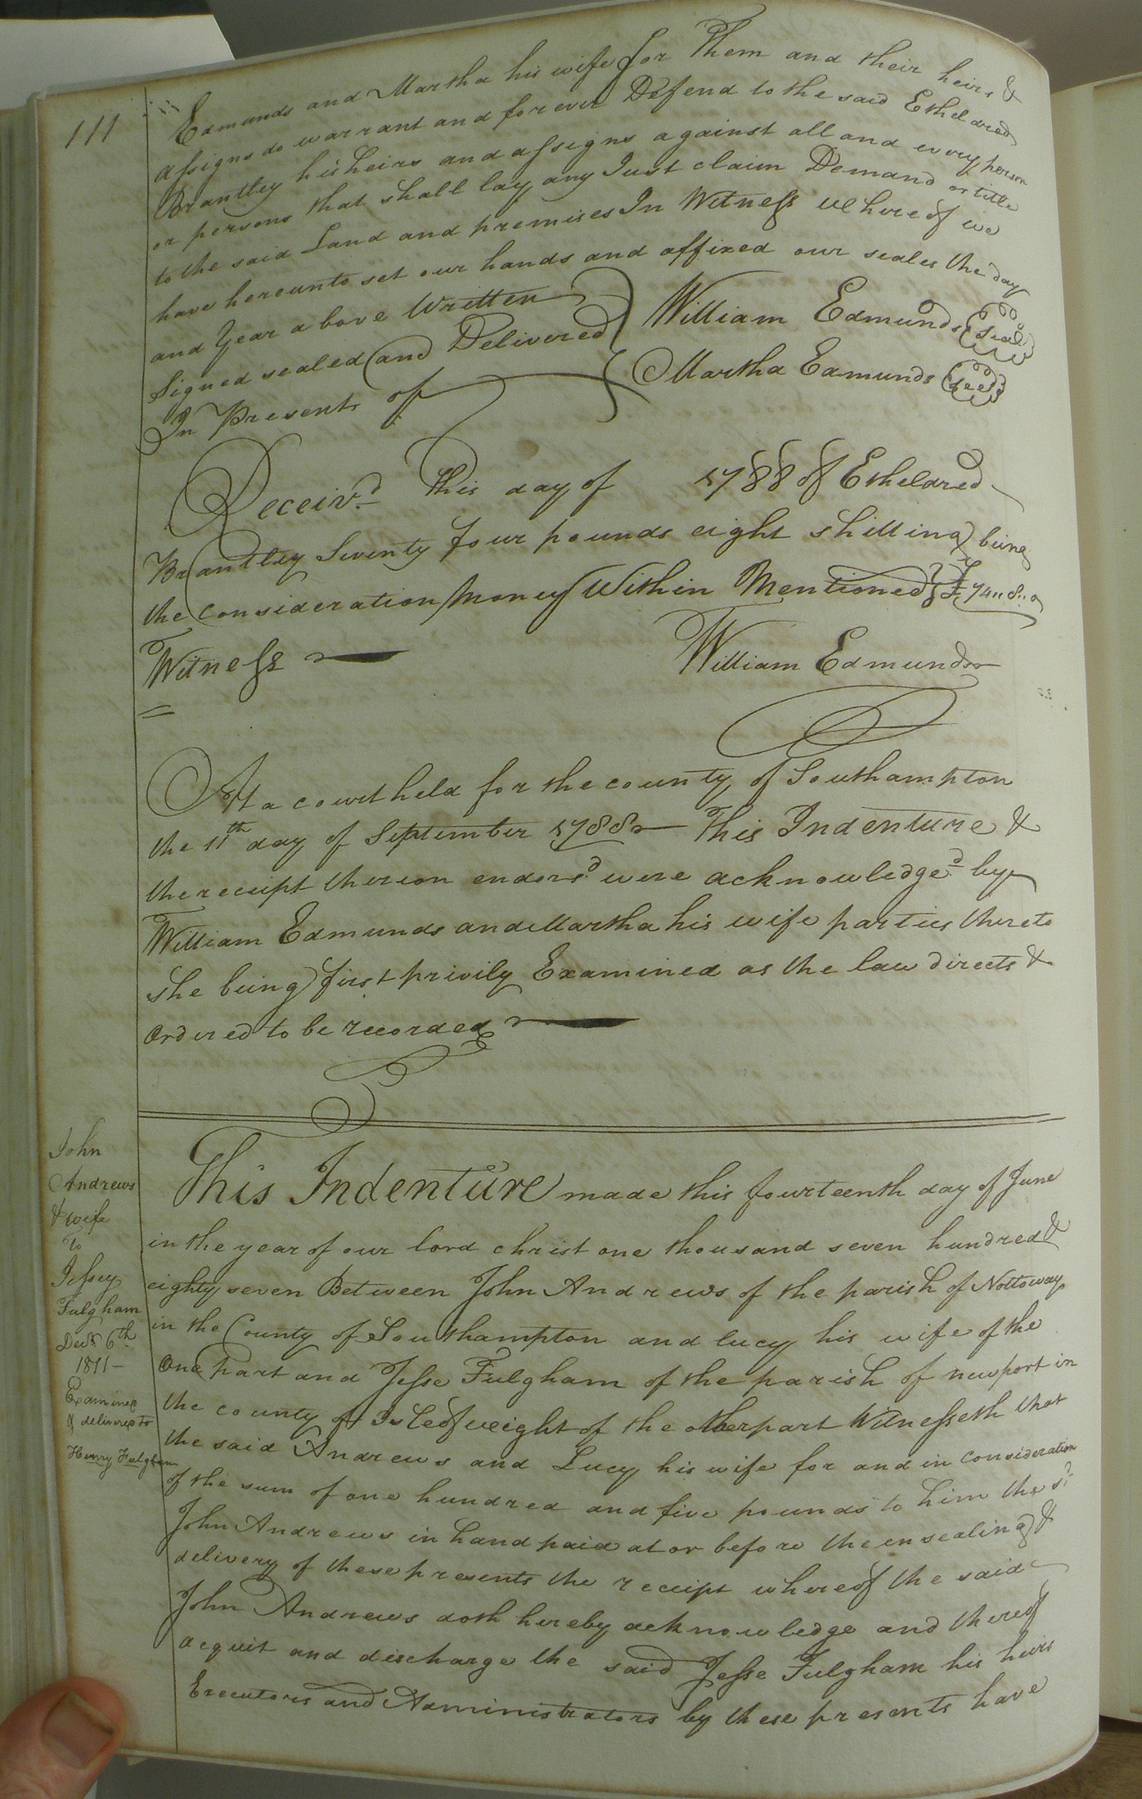 111
Edmunds and Martha his wife for Them and their heirs &
assigns do warrant and forever Defend to the said Etheldred
Brantley his heirs and assigns against all and every person
or persons that shall lay any Just claim Demand or title
to the said Land and premises In Witness whereof we
have hereunto set our hands and affixed our seales the day
and Year above Written
Signed sealed and Delivered
In Presents of
William Edmunds (seal)
Martha Edmunds (seal)
Receiv.d this day of 1788 of Etheldred
Brantley Seventy four pounds eight shilling being
the consideration money Within Mentioned } £ 74..8..0
Witness
William Edmunds
At a court held for the county of Southampton
the 11th day of September 1788 This Indenture &
the receipt thereon endors.d were acknowledge.d by
William Edmunds and Martha his wife parties thereto
she being first privily Examined as the law directs &
Ordered to be recorded
John
Andrews
& wife
To
Jessey
Fulgham
Decr 6th
1811
Examined
& deliverd to
Henry Fulgham
This Indenture made this fourteenth day of June
in the year of our lord christ one thousand seven hundred &
eighty seven Between John Andrews of the parish of Nottoway
in the County of Southampton and lucy his wife of the
One part and Jesse Fulgham of the parish of newport in
the county of Isle of weight of the other part Witnesseth that
the said Andrews and Lucy his wife for and in consideration
of the sum of one hundred and five pounds to him the s.d
John Andrews in hand paid at or before the ensealing &
delivery of these presents the receipt whereof the said
John Andrews doth hereby acknowledge and thereof
acquit and discharge the said Jesse Fulgham his heirs
Executors and Administrators by these presents have